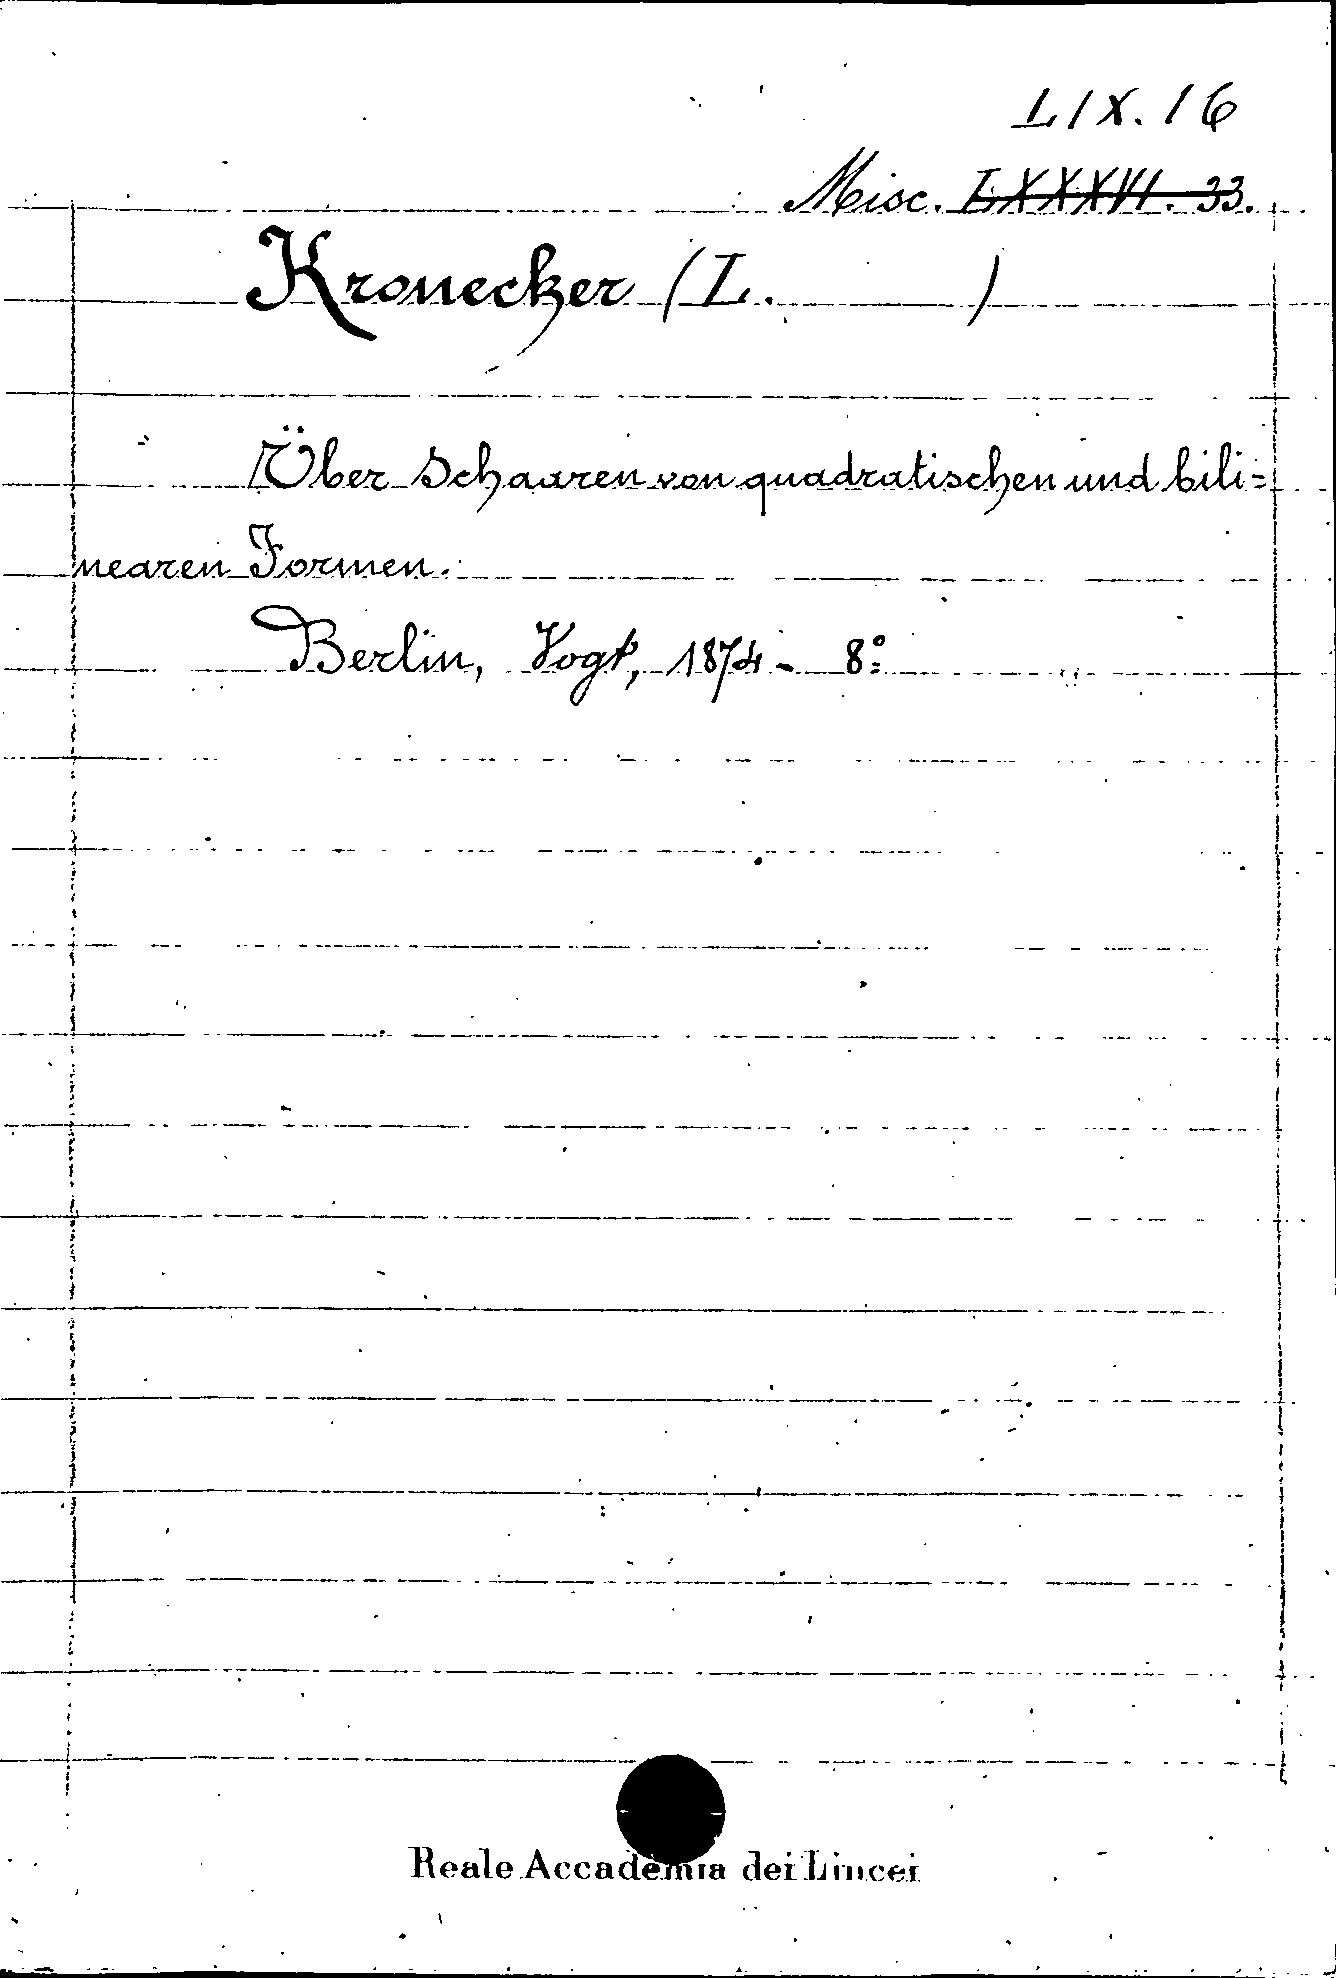 LIX. 16
Misc. LXXXVI. 33.
Kronecker (L. )
Über Schaaren von quadratischen und bili=
nearen Formen.
Berlin, Vogt, 1874 - 8º
Reale Accademia dei Lincei